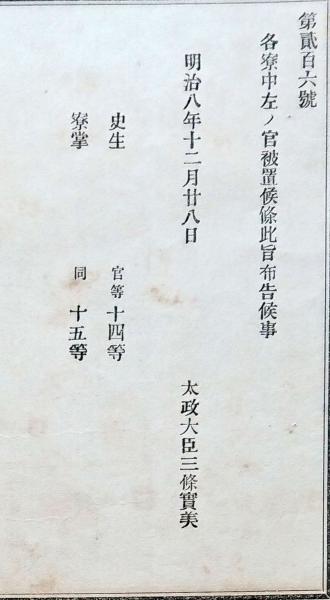 第貳百六號
各寮中左ノ官被置候條此旨布告候事
明治八年十二月廿八日
太政大臣三條實美
史生 官等十四等
寮掌 同 十五等